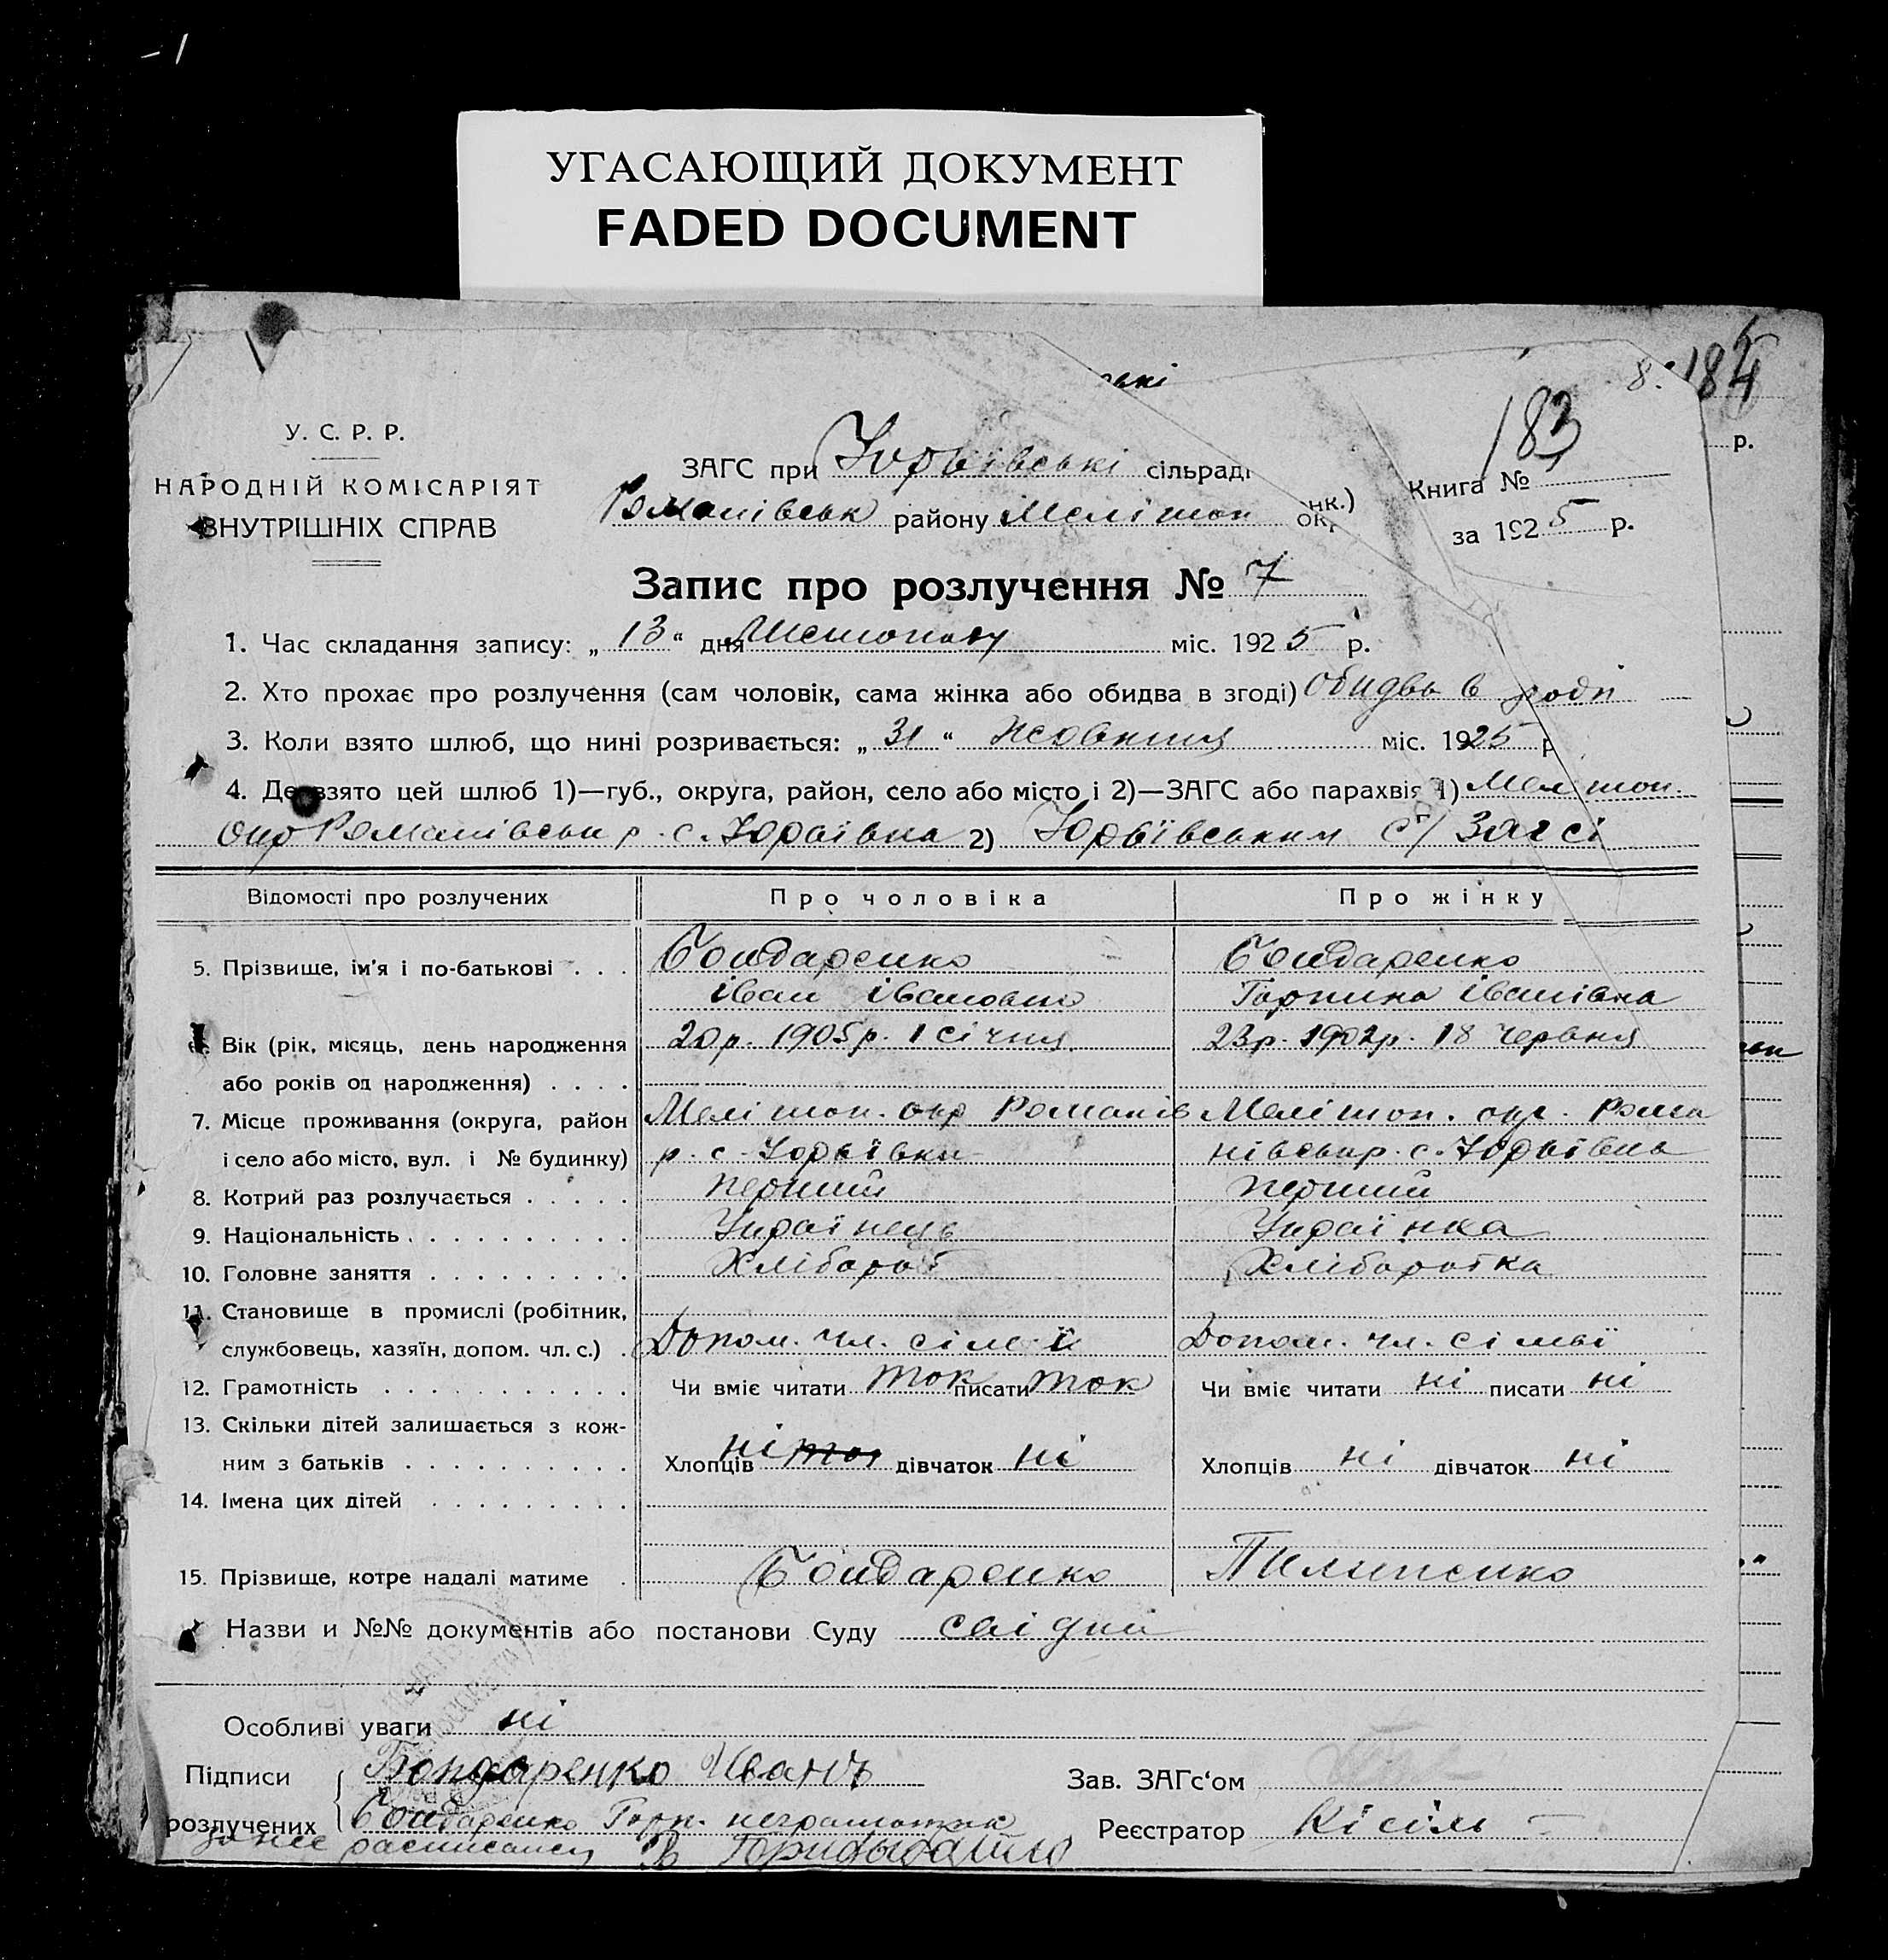 -1
УГАСАЮЩИЙ ДОКУМЕНТ
FADED DOCUMENT
ські
8. 184
183
р.
У. С. Р. Р.
НАРОДНІЙ КОМІСАРІЯТ
ВНУТРІШНІХ СПРАВ
ЗАГС при Юрʼївські сільраді
Романівськ району Мелітоп окр
нк.)
Книга №
за 1925 р.
Запис про розлучення № 7
1. Час складання запису: „13“ дня Листопаду міс. 1925 р.
2. Хто прохає про розлучення (сам чоловік, сама жінка або обидва в згоді) Обидва в
3. Коли взято шлюб, що нині розривається: „31“ Жовтня міс. 1925 р
4. Де взято цей шлюб 1)—губ., округа, район, село або місто і 2)—ЗАГС або парахвія 1) Мелітоп.
окр Романівськ р. с. Юрʼївка 2) Юрʼївським с/ Загсі
Відомості про розлучених
Про чоловіка
Про жінку
5. Прізвище, ім'я і по-батькові . . .
Бондаренко
іван іванович
Бондаренко
Горпина іванівна
Вік (рік, місяць, день народження
або років од народження) . . . .
20 р. 1905 р. 1 січня
23 р. 1902 р. 18 червня
7. Місце проживання (округа, район
і село або місто, вул. і № будинку)
Мелітоп. окр Романів
р. с. Юрʼївка
Мелітоп. окр. Рома
нівськ р. с. Юрʼївка
8. Котрий раз розлучається . . . . .
перший
перший
9. Національність . . . . . . . . . .
Українець
Українка
10. Головне заняття . . . . . . . . .
Хлібороб
Хліборобка
11. Становище в промислі (робітник,
службовець, хазяїн, допом. чл. с.) .
Допом. чл. сімʼї
Допом. чл. сімьї
12. Грамотність . . . . . . . . . . .
Чи вміє читати так писати так
Чи вміє читати ні писати ні
13. Скільки дітей залишається з кож-
ним з батьків . . . . . . . . . .
Хлопців ні дівчаток ні
Хлопців ні дівчаток ні
14. Імена цих дітей . . . . . . . . .
15. Прізвище, котре надалі матиме .
Бондаренко
Пилипенко
Назви и №№ документів або постанови Суду
Особливі уваги ні
Підписи
розлучених
Бондаренко Иванъ
Бондаренко Горп. неграмотна
за нее расписался
Зав. ЗАГс'ом
Реєстратор Кісіль